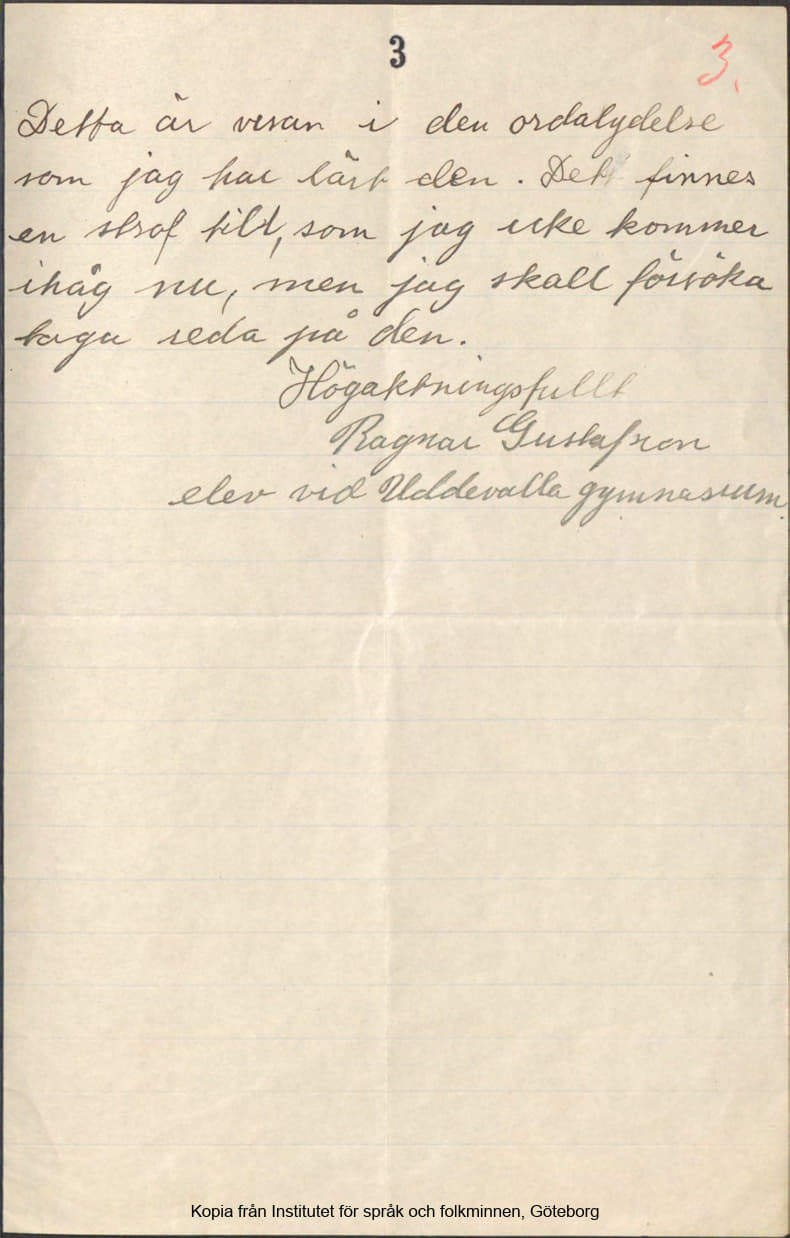 3
3.
Detta är visan i den ordalydelse
som jag har lärt den. Det finnes
en strof till, som jag icke kommer
ihåg nu, men jag skall försöka
taga reda på den.
Högaktningsfullt
Ragnar Gustafsson
elev vid Uddevalla gymnasium.
Kopia från Institutet för språk och folkminnen, Göteborg